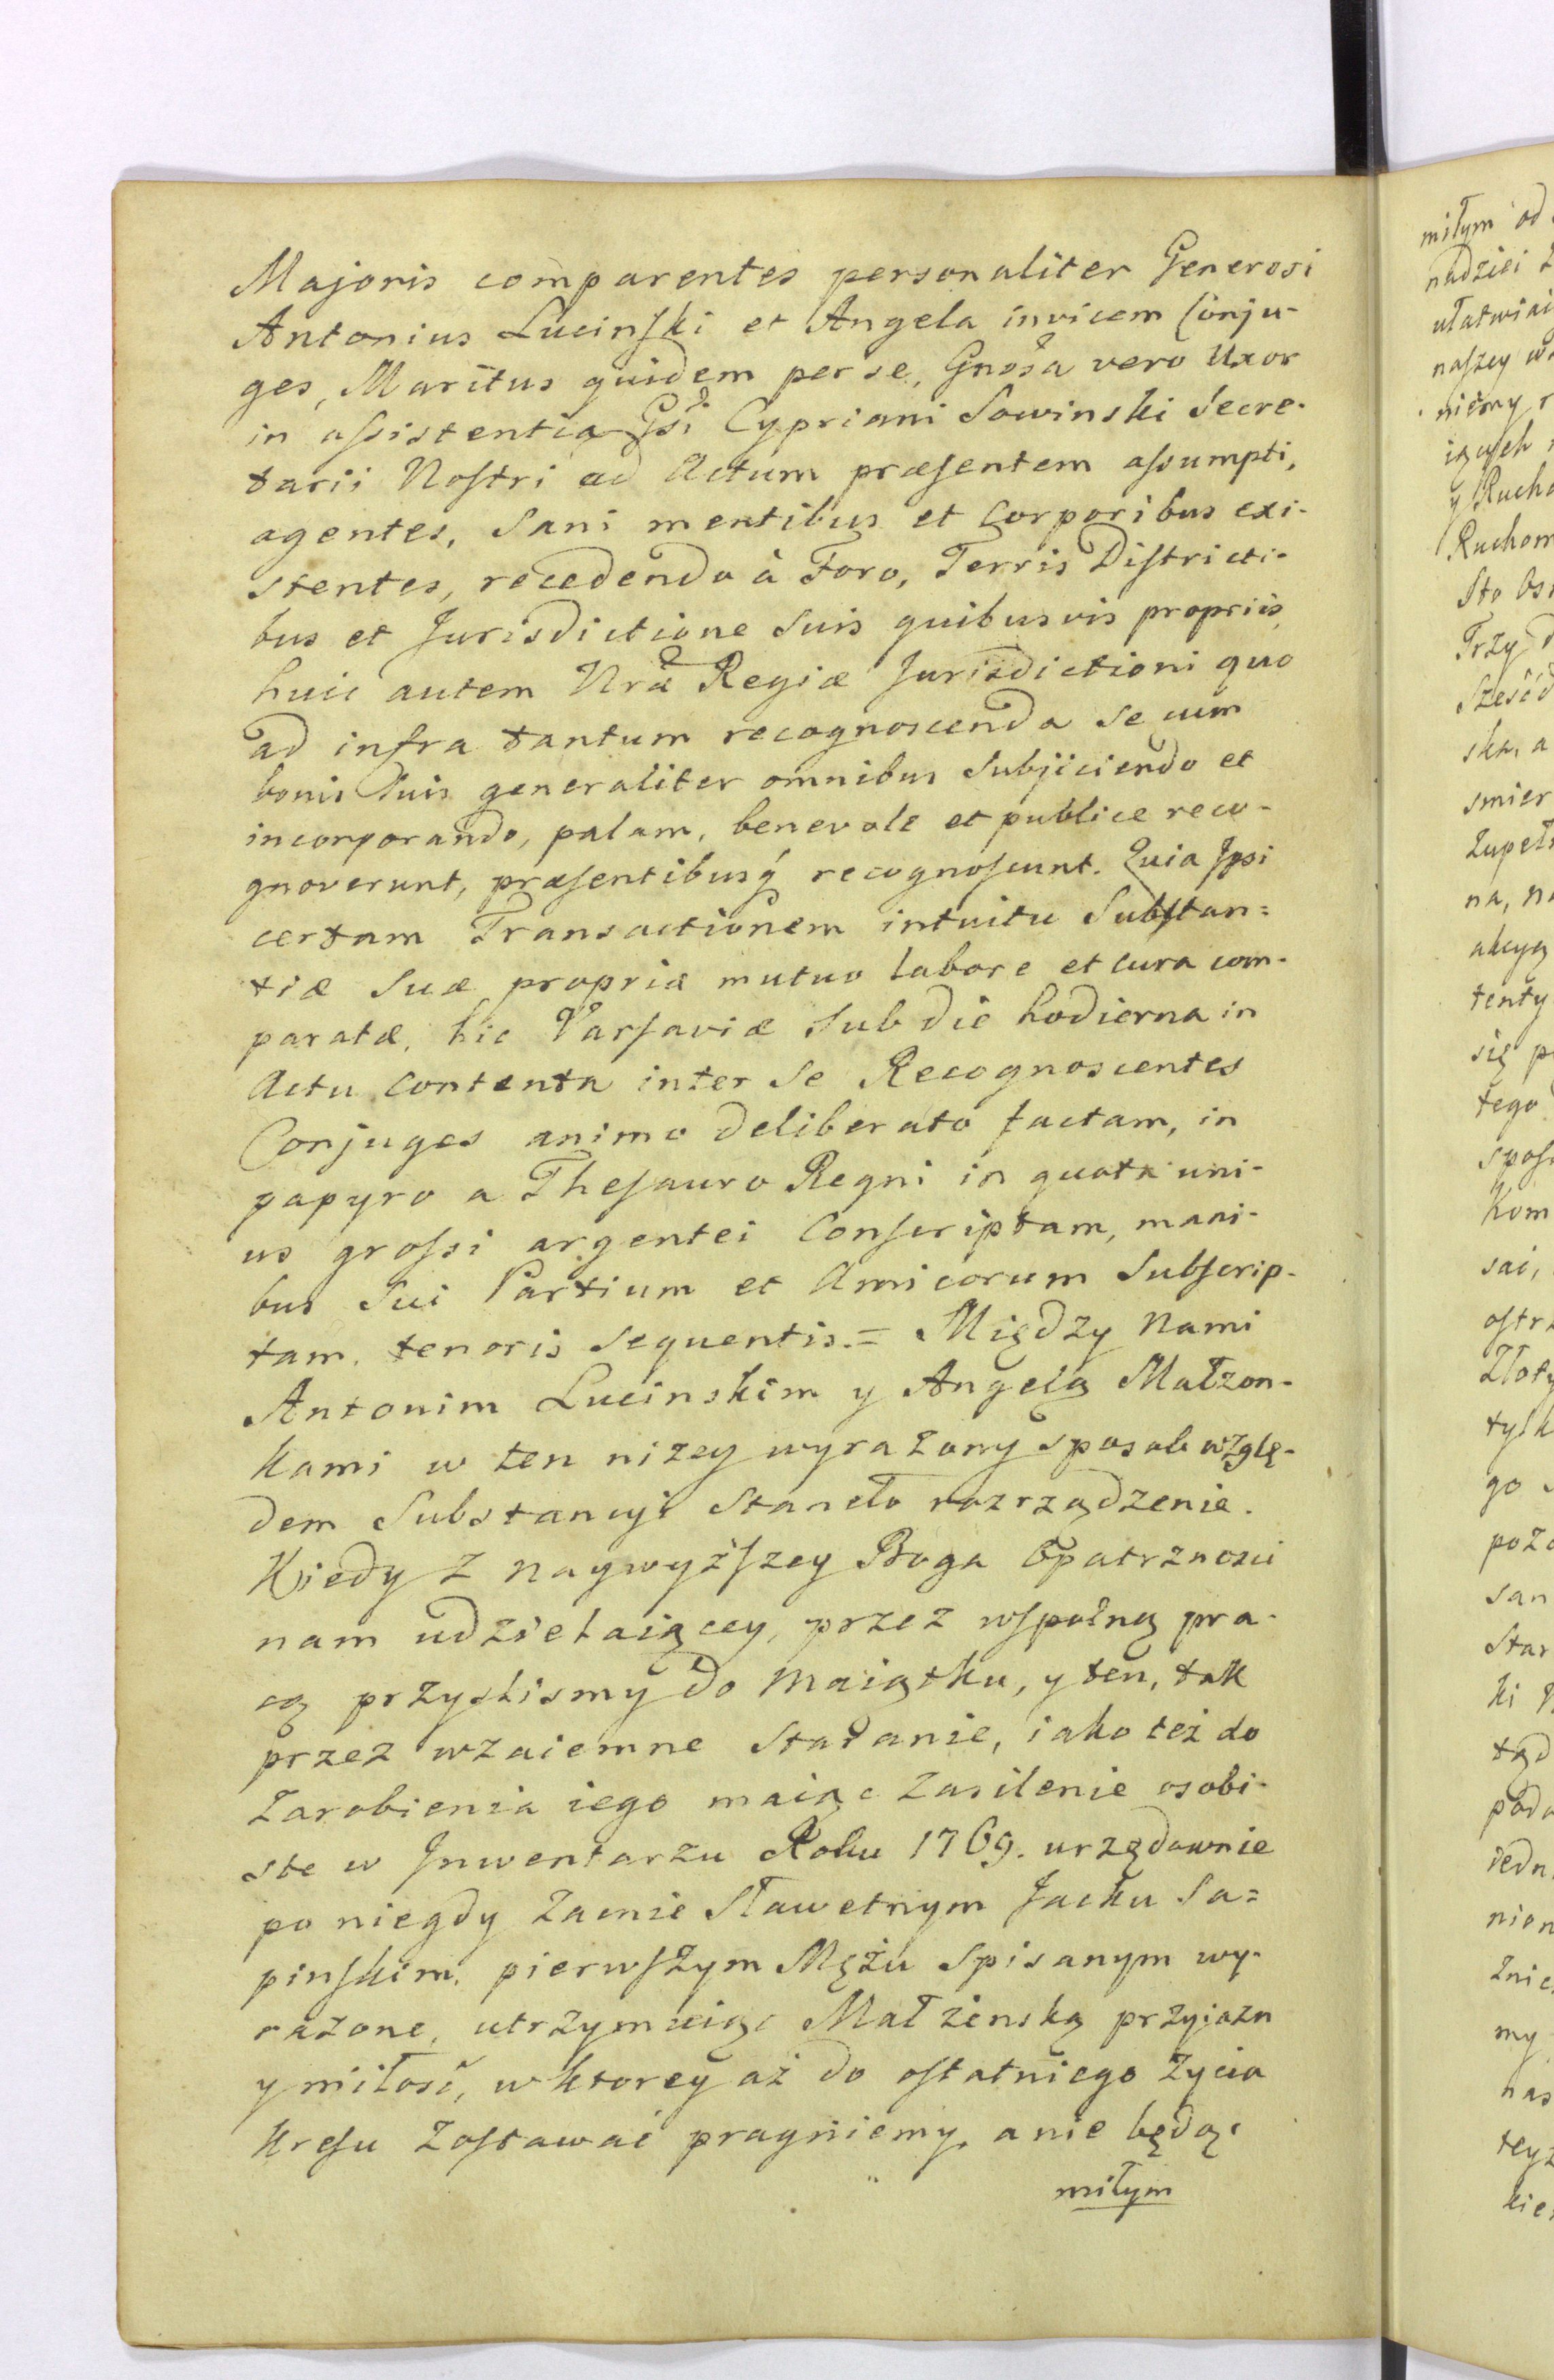 Majoris comparentes personaliter Generosi
Antonius Łucinſki et Angela invicem Conju-
ges, Maritus quidem per se, Gnosa vero Uxor
in aſsistentia Gsi Cypriani Sowinski Secre-
tarii Noſtri ad Actum præſentem aſsumpti,
agentes, Sani mentibus et Corporibus exi-
stentes, recedendo à Foro, Terris Diſtricti-
bus et Jurisdictione Suis quibusvis propriis,
huic autem Nræ Regiæ Jurisdictioni quo
ad infra tantum recognoscenda Se cum
bonis Suis generaliter omnibus Subjiciendo et
incorporando, palam, benevole et publice reco-
gnoverunt, præſentibusq́ recognoſcunt. Quia Ipsi
certam Transactionem intuitu Subſtan=
tiæ Suæ propriæ mutuo labore et cura com-
paratæ, hic Varſaviæ Sub die hodierna in
Actu Contenta inter Se Recognoscentes
Conjuges animo deliberato factam, in
papyro a Theſauro Regni in quota uni-
us groſsi argentei Conſcriptam, mani-
bus Sui Partium et Amicorum Subſcrip-
tam, tenoris Sequentis.= Między Nami
Antonim Łucinskim y Angelą Małzon-
kami w ten nizey wyrazony sposob wzglę-
dem Substancyi Staneło rozrządzenie.
Kiedy z naywyżſzey Boga Opatrznosci
nam udzielaiącey, przez wſpolną pra-
cą przyslismy do Maiątku, y ten, tak
przez wzaiemne Staranie, iako też do
Zarobienia iego maiąc Zasilenie osobi-
ste w Inwentarzu Roku 1769. urzędownie
po niegdy Zacnie Sławetnym Jacku Sa=
pinſkim, pierwſzym Mężu Spisanym wy-
razone, utrzymuiąc Małżenską przyjazn
y miłosć, w ktorey aż do oſtatniego Życia
Kreſu Zoſtawać pragniemy, a nie będąc
miłym
miłym od
nadziei
naſzey
Ruchom
Sto
Trzy
na,
tenty
się
tego
Kom
sai,
go
San
Star
ki
my
nas